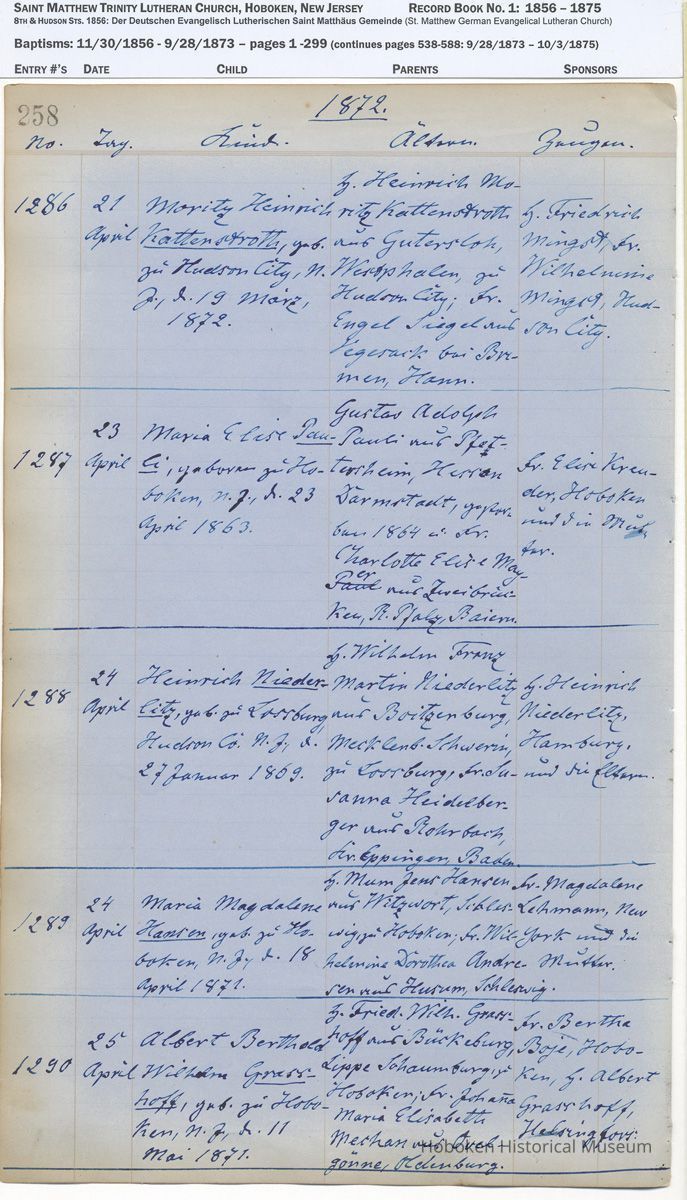 SAINT MATTHEW TRINITY LUTHERAN CHURCH, HOBOKEN, NEW JERSEY RECORD BOOK NO. 1: 1856 – 1875
8TH & HUDSON STS. 1856: Der Deutschen Evangelisch Lutherischen Saint Matthäus Gemeinde (St. Matthew German Evangelical Lutheran Church)
Baptisms: 11/30/1856 - 9/28/1873 – pages 1 -299 (continues pages 538-588: 9/28/1873 – 10/3/1875)
ENTRY #'S DATE CHILD PARENTS SPONSORS
258
1872.
No. Tag. Kind. Ältern. Zeugen.
1286
21
April
Moritz Heinrich
Kattenstroth, geb.
zu Hudson City, N.
J., d. 19 März,
1872.
H. Heinrich Mo-
ritz Kattenstroth
aus Gutersloh,
Westphalen, zu
Hudson City; Fr.
Engel Siegel aus
Vegesack bei Bre-
men, Hann.
H. Friedrich
Mingst, Fr.
Wilhelmine
Mingst, Hud-
son City.
1287
23
April
Maria Elise Pau-
li, geboren zu Ho-
boken, N.J., d. 23
April 1863.
Gustav Adolph
Pauli aus Pfef-
tersheim, Hessen
Darmstadt, gestor-
ben 1864 u. Fr.
Charlotte Elise May-
er
aus Zweibrüc-
ken, R. Pfalz, Baiern.
Fr. Elise Kreu-
der, Hoboken
und die Mut-
ter.
1288
24
April
Heinrich Nieder-
litz, geb. zu Lossburg,
Hudson Co. N.J., d.
27 Januar 1869.
H. Wilhelm Franz
Martin Niederlitz
aus Boitzenburg,
Mecklenb. Schwerin,
zu Lossburg, Fr. Su-
sanna Heidelber-
ger aus Rohrbach,
Kr. Eppingen, Baden.
H. Heinrich
Niederlitz,
Hamburg.
und die Eltern.
1289
24
April
Maria Magdalene
Hansen, geb. zu Ho-
boken, N.J., d. 18
April 1871.
H. Mum Jens Hansen
aus Witzwort, Schles-
wig zu Hoboken; Fr. Wil-
helmine Dorothea Andre-
sen aus Husum, Schleswig.
Fr. Magdalene
Lehmann, New
York und die
Mutter.
1290
25
April
Albert Berthold
Wilhelm Grass-
hoff, geb. zu Hobo-
ken, N.J., d. 11
Mai 1871.
H. Fried. Wilh. Grass-
hoff aus Bückeburg,
Lippe Schaumburg, zu
Hoboken; Fr. Johanna
Maria Elisabeth
Meehan aus
gönne, Oldenburg.
Fr. Bertha
Böje, Hobo-
ken, H. Albert
Grasshoff,
Helsingfors.
Hoboken Historical Museum